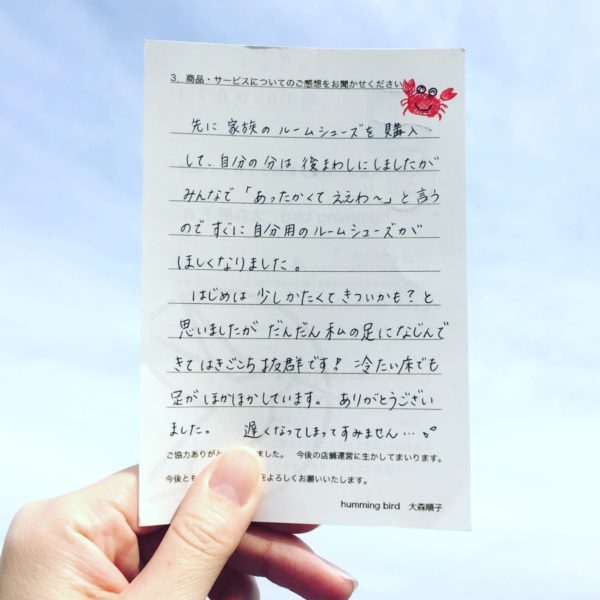 3．商品・サービスについてのご感想をお聞かせください
先に 家族の ルームシューズを 購入
して、自分の分は 後まわしにしましたが
みんなで「あったかくて ええわ〜」と言う
ので すぐに 自分用の ルームシューズが
ほしくなりました。
はじめは 少しかたくて きついかも？と
思いましたが だんだん 私の足に なじんで
きて はきごこち 抜群です！ 冷たい床でも
足が ほかほかしています。 ありがとうござい
ました。 遅くなってしまって すみません…
ご協力ありがと ました。 今後の店舗運営に生かしてまいります。
今後とも をよろしくお願いいたします。
humming bird 大森順子